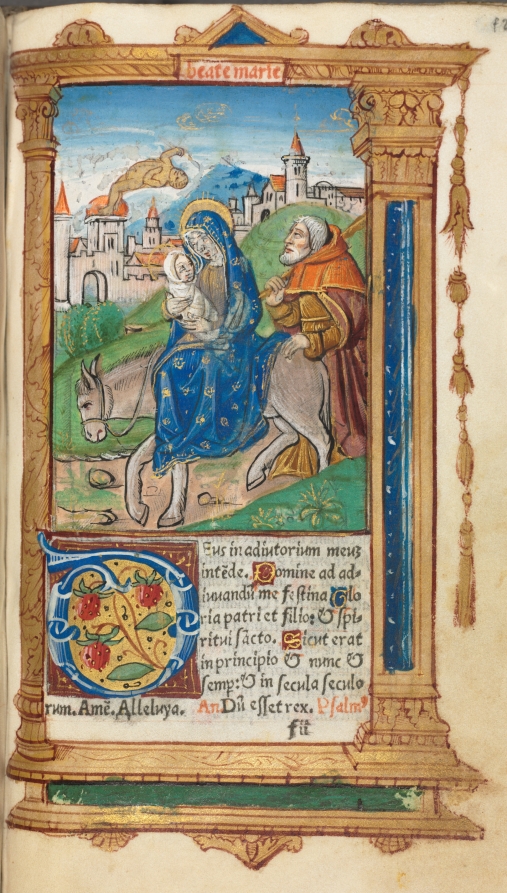 beate marie
Eus in adiutorium meuȝ
intēde. Domine ad ad-
iuuandū me festina Glo
ria patri et filio: & spi-
ritui sācto. Sicut erat
in principio & nunc &
semp: & in secula seculo
rum. Amē. Alleluya. An Dū esset rex. Psalmꝰ
fii